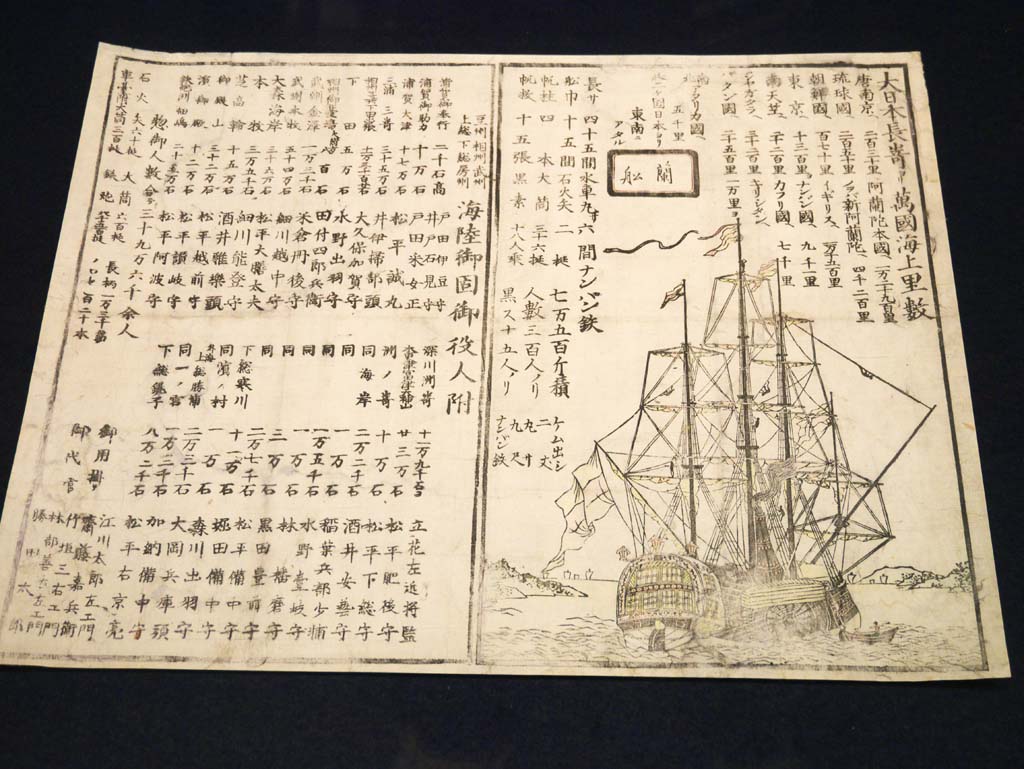 大日本長嵜ヨリ萬國海上里數
唐南京、二百三十里
琉球國、二百五十里
朝鮮國、百七十里
東京、十三百里
南天竺、二十二百里
阿蘭陀本國、一万二千九百里
新阿蘭陀、四千二百里
イギリス、
ナンバン國、九千一里
カフリ國、七千里
一万里ヨ
北アメリカ國
五千里
東南ニ
アタル
蘭船
長サ 四十五間水車九寸六間ナンバン鉄
舩巾 十五間石火矢 二挺 七万五百斤積
帆柱 四本大筒 三十六挺 人數三百人ノリ
帆数 十五張黒素 十八人乗 黒スナ五人ノリ
二丈
九寸
九尺
ナンバン鉄
豆州相州武州
上総下総房州
海陸御固御役人附
浦賀御奉行 二千石高 戸田伊豆守
井戸石見守
浦賀御助力 十万石 戸田采女正
浦賀大津 十七万石 松平誠丸
三浦三嵜 三十五万石 井伊掃部頭
大久保加賀守
下田 五万石 水野出羽守
百石 田付四郎兵衛
武州金澤 一万二千石 米倉丹後守
武州本牧 五十四万石 細川越中守
大森海岸 三十六万石 松平大膳太夫
本牧 三万五千石 細川能登守
芝高輪 十五万石 酒井雅樂頭
御殿山 三十二万石 松平越前守
濱御殿 十二万石 松平讃岐守
松平阿波守
惣御人數合 三十九万六千余人
石火矢六十挺 大筒六百挺 長柄
鉄炮
深川洲嵜 立花左近将監
廿三万石 松平肥後守
洲ノ嵜 十万石 松平下総守
同海岸 一万二千石 酒井安藝守
同 一万石 稲葉兵部少輔
同 一万五千石 水野壹岐守
同 一万石 林播磨守
同 三万石 黒田豊前守
同 二万七千石 松平備中守
下総寒川 十一万石 堀田備中守
同濱ノ村 一万石 森川出羽守
上総勝浦 二万三千石 大岡兵庫頭
同一ノ宮 一万三千石 加納備中守
下総銚子 八万二千石 松平右京亮
御用掛リ 江川太郎左エ門
御代官 齋藤嘉兵衛
竹垣三右エ門
林部善太左エ門